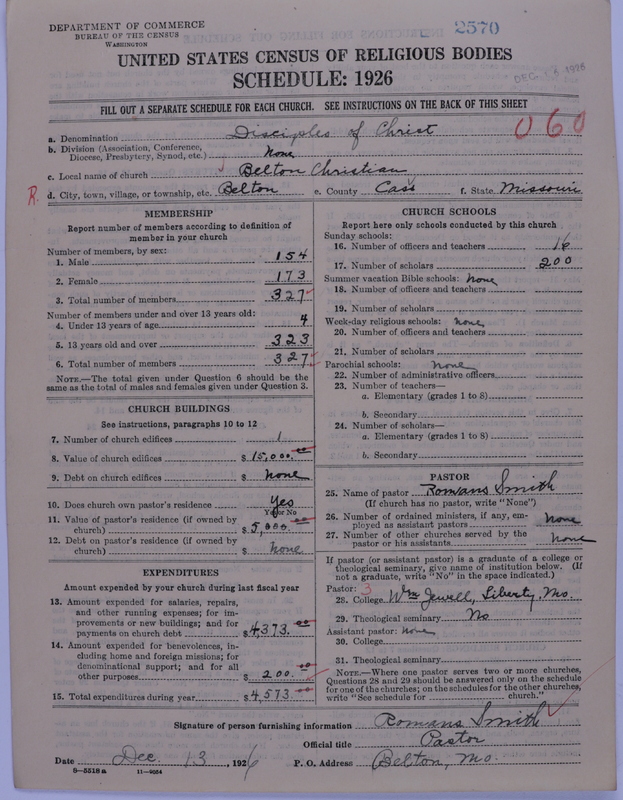 DEPARTMENT OF COMMERCE
BUREAU OF THE CENSUS
WASHINGTON
2570
UNITED STATES CENSUS OF RELIGIOUS BODIES
SCHEDULE: 1926
DEC 16 1926
FILL OUT A SEPARATE SCHEDULE FOR EACH CHURCH. SEE INSTRUCTIONS ON THE BACK OF THIS SHEET
a. Denomination Disciples of Christ 060
b. Division (Association, Conference, Diocese, Presbytery, Synod, etc.) None
c. Local name of church Belton Christian
R. d. City, town, village, or township, etc. Belton e. County Cass f. State Missouri
MEMBERSHIP
Report number of members according to definition of
member in your church
Number of members, by sex:
1. Male 154
2. Female 173
3. Total number of members 327
Number of members under and over 13 years old:
4. Under 13 years of age 4
5. 13 years old and over 323
6. Total number of members 327
NOTE.—The total given under Question 6 should be
same as the total of males and females given under Question 3.
CHURCH BUILDINGS
See instructions, paragraphs 10 to 12
7. Number of church edifices 1
8. Value of church edifices $ 15,000.00
9. Debt on church edifices $ None
10. Does church own pastor's residence Yes
Yes or No
11. Value of pastor's residence (if owned by
church) $ 5,000.00
12. Debt on pastor's residence (if owned by
church) $ None
EXPENDITURES
Amount expended by your church during last fiscal year
13. Amount expended for salaries, repairs,
and other running expenses; for im-
provements or new buildings; and for
payments on church debt $ 4,373.00
14. Amount expended for benevolences, in-
cluding home and foreign missions; for
denominational support; and for all
other purposes $ 200.00
15. Total expenditures during year $ 4,573.00
CHURCH SCHOOLS
Report here only schools conducted by this church
Sunday schools:
16. Number of officers and teachers 16
17. Number of scholars 200
Summer vacation Bible schools: None
18. Number of officers and teachers
19. Number of scholars
Week-day religious schools: None
20. Number of officers and teachers
21. Number of scholars
Parochial schools: None
22. Number of administrative officers
23. Number of teachers—
a. Elementary (grades 1 to 8)
b. Secondary
24. Number of scholars—
a. Elementary (grades 1 to 8)
b. Secondary
PASTOR
25. Name of pastor Romans Smith
(If church has no pastor, write "None")
26. Number of ordained ministers, if any, em-
ployed as assistant pastors None
27. Number of other churches served by the
pastor or his assistants None
If pastor (or assistant pastor) is a graduate of a college or
theological seminary, give name of institution below. (If
not a graduate, write "No" in the space indicated.)
Pastor: 3
28. College Wm Jewell, Liberty, Mo.
29. Theological seminary No
Assistant pastor: None
30. College
31. Theological seminary
NOTE.—Where one pastor serves two or more churches,
Questions 28 and 29 should be answered only on the schedule
for one of the churches; on the schedules for the other churches,
write "See schedule for church."
Signature of person furnishing information Romans Smith
Official title Pastor
Date Dec. 13, 1926 P. O. Address Belton, Mo.
8—5518 a 11—9054